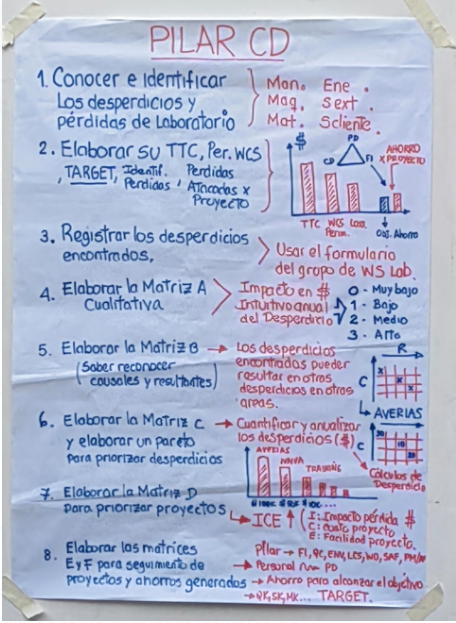 PILAR CD
1. Conocer e identificar
Los desperdicios y
pérdidas de Laboratorio
Man. Ene.
Maq. Sext.
Mat. Scliente.
2. Elaborar su TTC, Per. WCS
, TARGET, Identif. Perdidas
Perdidas, Atacadas x
Proyecto
$
PD
CD
FI
AHORRO
X PROYECTO
TTC WCS
Perm.
Obj. Ahorro
3. Registrar los desperdicios
encontrados.
Usar el formulario
del grupo de WS Lab.
4. Elaborar la Matriz A
Cualitativa
Impacto en $
Intuitivo anual
del Desperdicio
0 - Muy bajo
1 - Bajo
2 - Medio
3 - Alto
5. Elaborar la Matriz B
(Saber reconocer
causales y resultantes)
Los desperdicios
encontrados pueder
resultar en otros
desperdicios en otras
areas.
R
C
x
x
x
AVERIAS
6. Elaborar la Matriz C
y elaborar un pareto
para priorizar desperdicios
Cuantificar y anualizar
los desperdicios ($)
C
Cálculos de
Desperdicio
AVERIAS
TRAINING
7. Elaborar la Matriz D
para priorizar proyectos
ICE
I: Impacto pérdida $
C: costo proyecto
E: Facilidad proyecto.
8. Elaborar las matrices
E y F para seguimiento de
proyectos y ahorros generados
Pilar → FI, QC, EM, LES, WO, SAF, PM/AM
Personal PD
Ahorro para alcanzar el objetivo
TARGET.